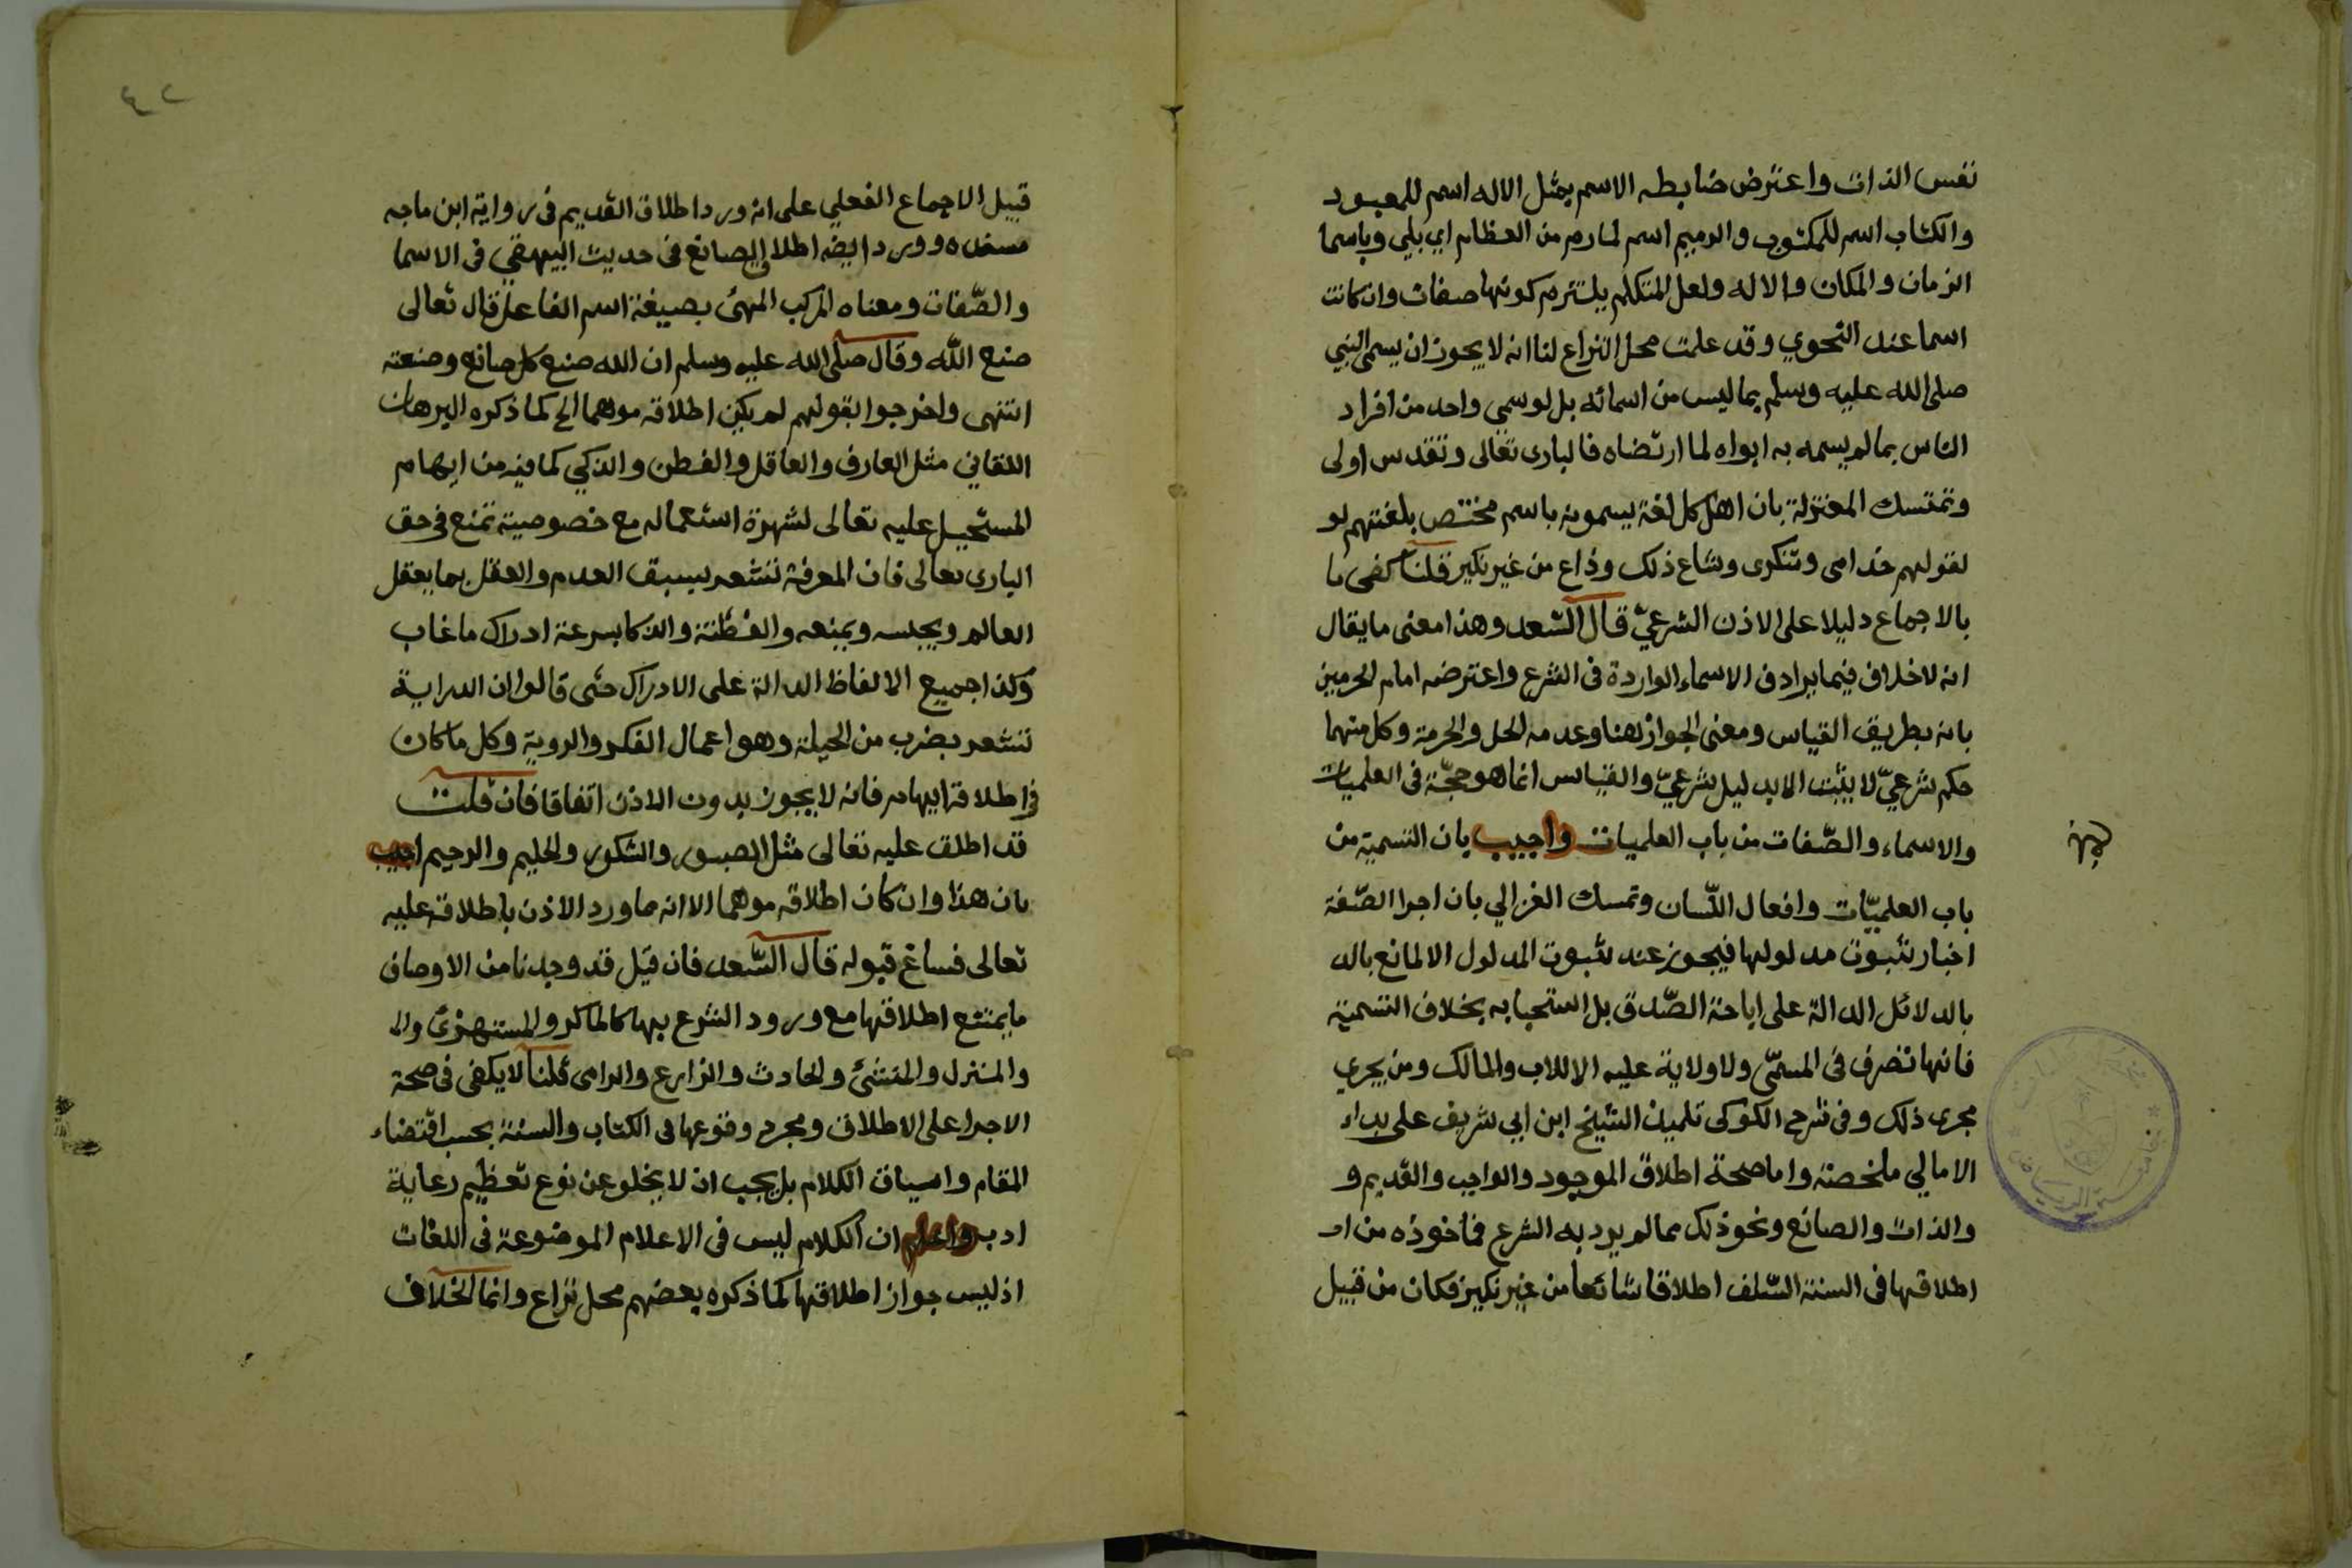 نفس الذات واعترض ضابطه الاسم بمثل الاله اسم للمعبود
والكتاب اسم للمكتوب والرميم اسم لمارم من العظام اي بلي وباسما
الزمان والمكان والاله ولعل المتكلم يلتزم كونها صفات وان كانت
اسما عند النحوي وقد علمت محل النزاع لنا انه لا يجوز ان يسمى النبي
صلى الله عليه وسلم بما ليس من اسمائه بل لو سمى واحد من افراد
الناس بما لم يسمه به ابواه لما ارتضاه فالبارى تعالى وتقدس اولى
وتمتسك المعتزلة بان اهل كل لغة يسمونه باسم مختص بلغتهم لو
لقولهم خدامى وتنكرى وشاع ذلك وذاع من غير نكير قلنا كفى ما
بالاجماع دليلا على الاذن الشرعيّ قال السّعد وهذا معنى ما يقال
انه لا خلاف فيما يرادف الاسماء الواردة فى الشرع واعترضه امام الحرمين
بانه بطريق القياس ومعنى الجواز هنا وعدمه الحل والحرمة وكل منهما
حكم شرعيّ لا يثبت الا بدليل شرعيّ والقياس انما هو حجّة فى العلميات
والاسماء والصّفات من باب العلميات واجيب بان التسمية من
باب العلميّات وافعال اللّسان وتمسك الغزالي بان اجرا الصّفة
اخبار بثبوت مدلولها فيجوز عند ثبوت المدلول الا لمانع بالد
بالدلائل الدالة على اباحة الصّدق بل استحبابه بخلاف التسمية
فانها تصرف فى المسمّى ولا ولاية عليه الا للاب والمالك ومن يجري
مجرى ذلك وفى شرح الكوكى تلميذ الشيخ ابن ابي شريف على بداء
الامالي ملخصته واما صحة اطلاق الموجود والواجب والقديم و
والذات والصانع ونحو ذلك مما لم يرد به الشرع فماخوذه من ا
اطلاقها فى السنة السّلف اطلاقا شائعا من غير نكير فكان من قبيل
قبيل الاجماع الفعلي على انه ورد اطلاق القديم فى رواية ابن ماجه
وورد ايضه اطلاق الصانع فى حديث البيهقي فى الاسما
والصّفات ومعناه المركب المهئ بصيغة اسم الفاعل قال تعالى
صنع الله وقال صلى الله عليه وسلم ان الله صنع كل صانع وصنعته
انتهى واخرجوا بقولهم لم يكن اطلاقه موهما الح كما ذكره البرهان
اللقاني مثل العارف والعاقل والفطن والذكي كما فيه من ايهام
المستحيل عليه تعالى لشهرة استعماله مع خصوصية تمنع فى حق
البارى تعالى فان المعرفة تشعر بسبق العدم والعقل بما يعقل
العالم ويحبسه ويمنعه والفطنة والذكا بسرعة ادراك ما غاب
وكذا جميع الالفاظ الدالة على الادراك حتى قالوا ان الدراية
تشعر بضرب من الحيلة وهو اعمال الفكر والروية وكل ما كان
فى اطلاقه ايهام فانه لا يجوز بدون الاذن اتفاقا فان قلت
قد اطلق عليه تعالى مثل الصبور والشكور والحليم والرحيم اجيب
بان هذا وان كان اطلاقه موهما الا انه ما ورد الاذن باطلاقه عليه
تعالى فساغ قبوله قال السّعد فان قيل قد وجدنا من الاوصاف
ما يمتنع اطلاقها مع ورود الشرع بها كالماكر والمستهزئ والم
والمنزل والمنشئ والحادث والزارع والرامى قلنا لا يكفى فى صحة
الاجرا على الاطلاق ومجرد وقوعها فى الكتاب والسنة بحسب اقتضاء
المقام واسياق الكلام بل يجب ان لا يخلو عن نوع تعظيم رعاية
ادب واعلم ان الكلام ليس فى الاعلام الموضوعة فى اللغات
اذ ليس جواز اطلاقها كما ذكره بعضهم محل نزاع وانما الخلاف